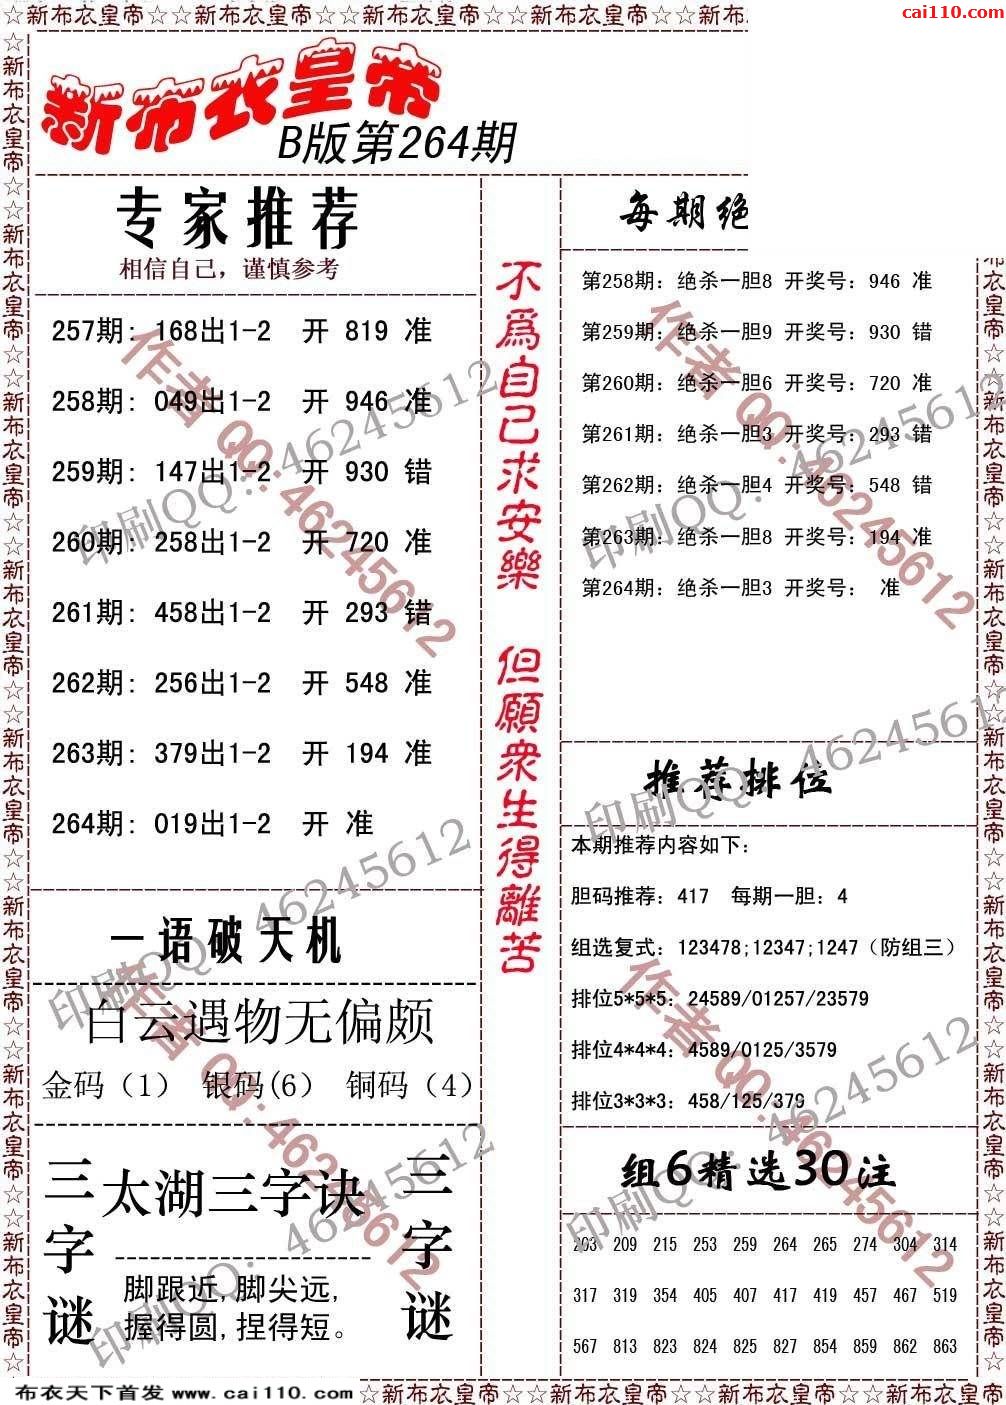 ☆新布衣皇帝☆☆新布衣皇帝☆☆新布衣皇帝☆☆新布衣皇帝☆☆新布
cai110.com
新布衣皇帝
B版第264期
专家推荐
相信自己，谨慎参考
257期: 168出1-2 开 819 准
258期: 049出1-2 开 946 准
259期: 147出1-2 开 930 错
260期: 258出1-2 开 720 准
261期: 458出1-2 开 293 错
262期: 256出1-2 开 548 准
263期: 379出1-2 开 194 准
264期: 019出1-2 开 准
一语破天机
白云遇物无偏颇
金码（1） 银码(6） 铜码（4）
三字谜
太湖三字诀
脚跟近,脚尖远,
握得圆,捏得短。
三字谜
不為自己求安樂 但願衆生得離苦
每期绝
第258期: 绝杀一胆8 开奖号: 946 准
第259期: 绝杀一胆9 开奖号: 930 错
第260期: 绝杀一胆6 开奖号: 720 准
第261期: 绝杀一胆3 开奖号: 293 错
第262期: 绝杀一胆4 开奖号: 548 错
第263期: 绝杀一胆8 开奖号: 194 准
第264期: 绝杀一胆3 开奖号: 准
推荐排位
本期推荐内容如下:
胆码推荐: 417 每期一胆: 4
组选复式: 123478;12347;1247（防组三）
排位5*5*5: 24589/01257/23579
排位4*4*4: 4589/0125/3579
排位3*3*3: 458/125/379
组6精选30注
203 209 215 253 259 264 265 274 304 314
317 319 354 405 407 417 419 457 467 519
567 813 823 824 825 827 854 859 862 863
作者 QQ:46245612
印刷QQ: 46245612
作者 QQ:46245612
印刷QQ: 46245612
印刷QQ: 46245612
印刷QQ: 46245612
作者 QQ:46245612
作者 QQ:46245612
印刷QQ: 46245612
印刷QQ: 46245612
☆新布衣皇帝☆☆新布衣皇帝☆☆新布衣皇帝☆☆新布衣皇帝☆☆新布衣皇帝☆☆新布衣皇帝☆☆新布衣皇帝☆☆新布衣皇帝☆
布衣天下首发 www.cai110.com
☆新布衣皇帝☆☆新布衣皇帝☆☆新布衣皇帝☆☆新布衣皇帝☆